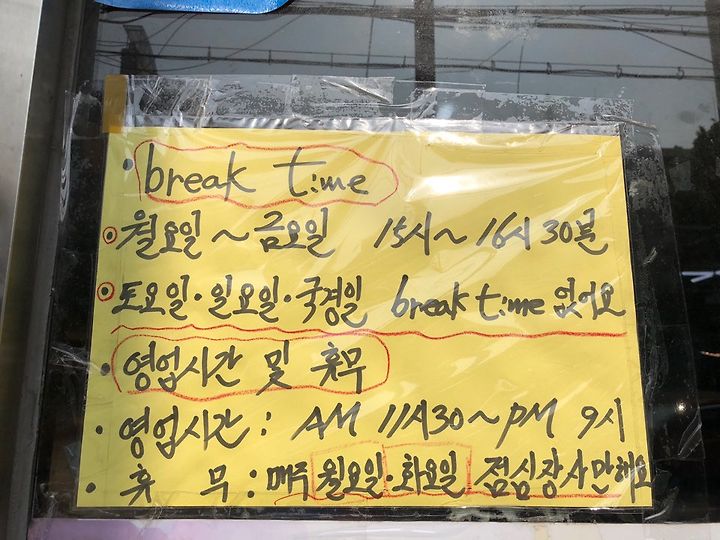 • break time
⊙ 월요일 ~ 금요일 15시 ~ 16시 30분
⊙ 토요일 · 일요일 · 국경일 break time 없어요
• 영업시간 및 휴무
• 영업시간 : AM 11시30 ~ PM 9시
• 휴 무 : 매주 월요일 · 화요일 점심장사만해요